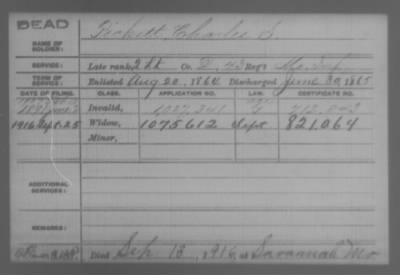 DEAD
NAME OF SOLDIER: Pickett, Charles S.
SERVICE: Late rank, 2 Lt Co. D. 43 Reg't Mo. Inf.
TERM OF SERVICE: Enlisted Aug 20, 1864 Discharged June 30, 1865
DATE OF FILING. CLASS. APPLICATION NO. LAW. CERTIFICATE NO.
Invalid,
1916 Sept. 25 Widow, 1075612 Sept 821,064
Minor,
ADDITIONAL SERVICES:
REMARKS:
Died Sep 18, 1916, at Savannah Mo